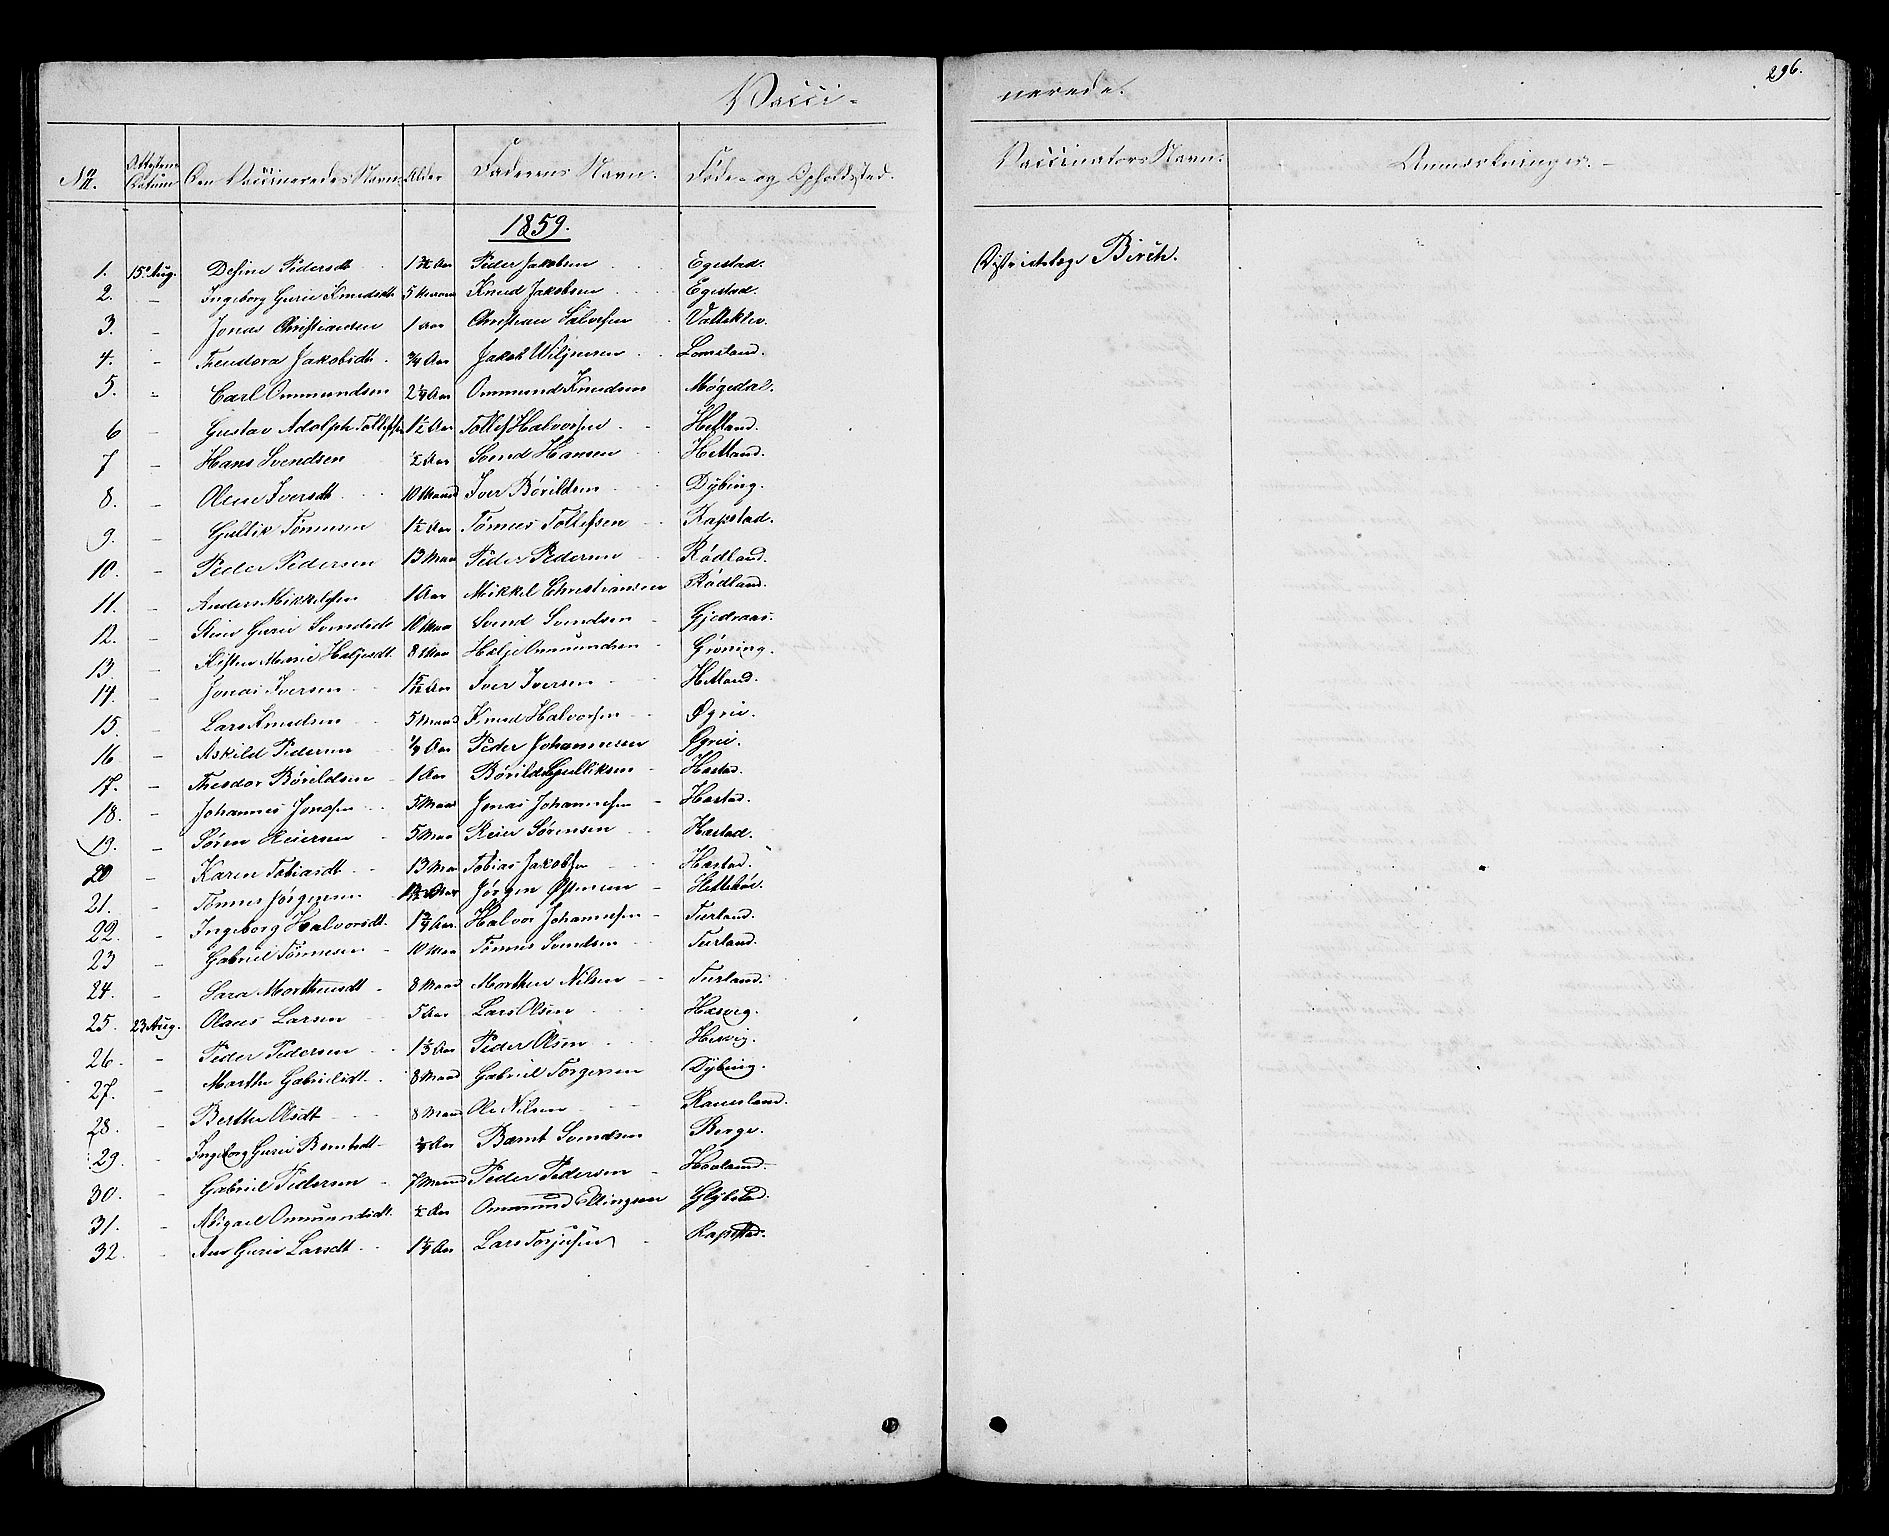 Vacci-
nerede.
296.
No. Attestens Datum Den Vaccineredes Navn. Alder Faderens Navn. Føde- og Opholdssted. Vaccinators Navn. Anmærkninger.
1859.
1. 15 Aug. Pedersdt Peder Jakobsen Egestad. Districtslæge Birch.
2. - Ingeborg Gurie Knudsdt 5 Knud Jakobsen Egestad.
3. - Jonas Christiansen 1 Aar Christian Salvesen
4. - Theodora Jakobsdt. 3/4 Aar Jakob Lomeland.
5. - Carl Ommundsen 2 1/4 Aar Ommund Knudsen Møgedal.
6 - Gustav Adolph Tollefsen 1 1/2 Aar Tollef Halvorsen Hetland.
7 - Hans Svendsen 1/2 Aar Svend Hansen Hetland.
8. - Olene Iversdt 10 Maand Iver Børildsen Dybing.
9. - Gullik Tønnesen 1 1/2 Aar Tønnes Tollefsen Rapstad.
10. - Peder Pedersen 13 Maan Peder Pedersen Rødland.
11. - Anders Mikkelsen 1 Aar Mikkel Christiansen Rødland.
12. - Stine Gurie Svendsdt 10 Maan Svend Svendsen Gjedraas.
13. - Marie Heljesdt. 8 Maan Helje Ommundsen Grøning.
14. - Jonas Iversen Aar Iver Iversen Hetland.
15. - Lars Knudsen 5 Maand Knud Halvorsen Øgrei.
16 - Askild Pedersen Aar Peder Johannesen Øgrei.
17. - Theodor Børildsen 1 Aar Børild Gulliksen Hæstad.
18. - Johannes Jonasen 5 Maand Jonas Johannesen Hæstad.
19. - Søren Reiersen 5 Maan Reier Sørensen Hæstad.
20 - Karen Tobiasdt 13 Maan Tobias Jakobsen Hæstad.
21. - Tønnes Jørgensen Aar Jørgen Østensen
22. - Ingeborg Halvorsdt. Aar. Halvor Johannesen Terland.
23 - Gabriel Tønnesen 10 Maan Tønnes Svendsen Terland.
24. - Sara Morthensdt 8 Maand Morthen Nilsen Terland.
25. 23 Aug. Olaus Larsen 5 Aar Lars Olsen
26. - Peder Pedersen Aar Peder Olsen
27. - Marthe Gabrielsdt. 8 Maand Gabriel Torgersen Dybing.
28. - Berthe Olsdt 8 Maan Ole Nilsen
29. - Ingeborg Gurie Berntsdt Aar Bernt Svendsen Berge.
30. - Gabriel Pedersen 7 Maand Peder Pedersen Haaland.
31. - Abigael Ommundsdt. 1/2 Aar Ommund Ellingsen
32. - Ane Gurie Larsdt Aar Lars Torjusen Rapstad.